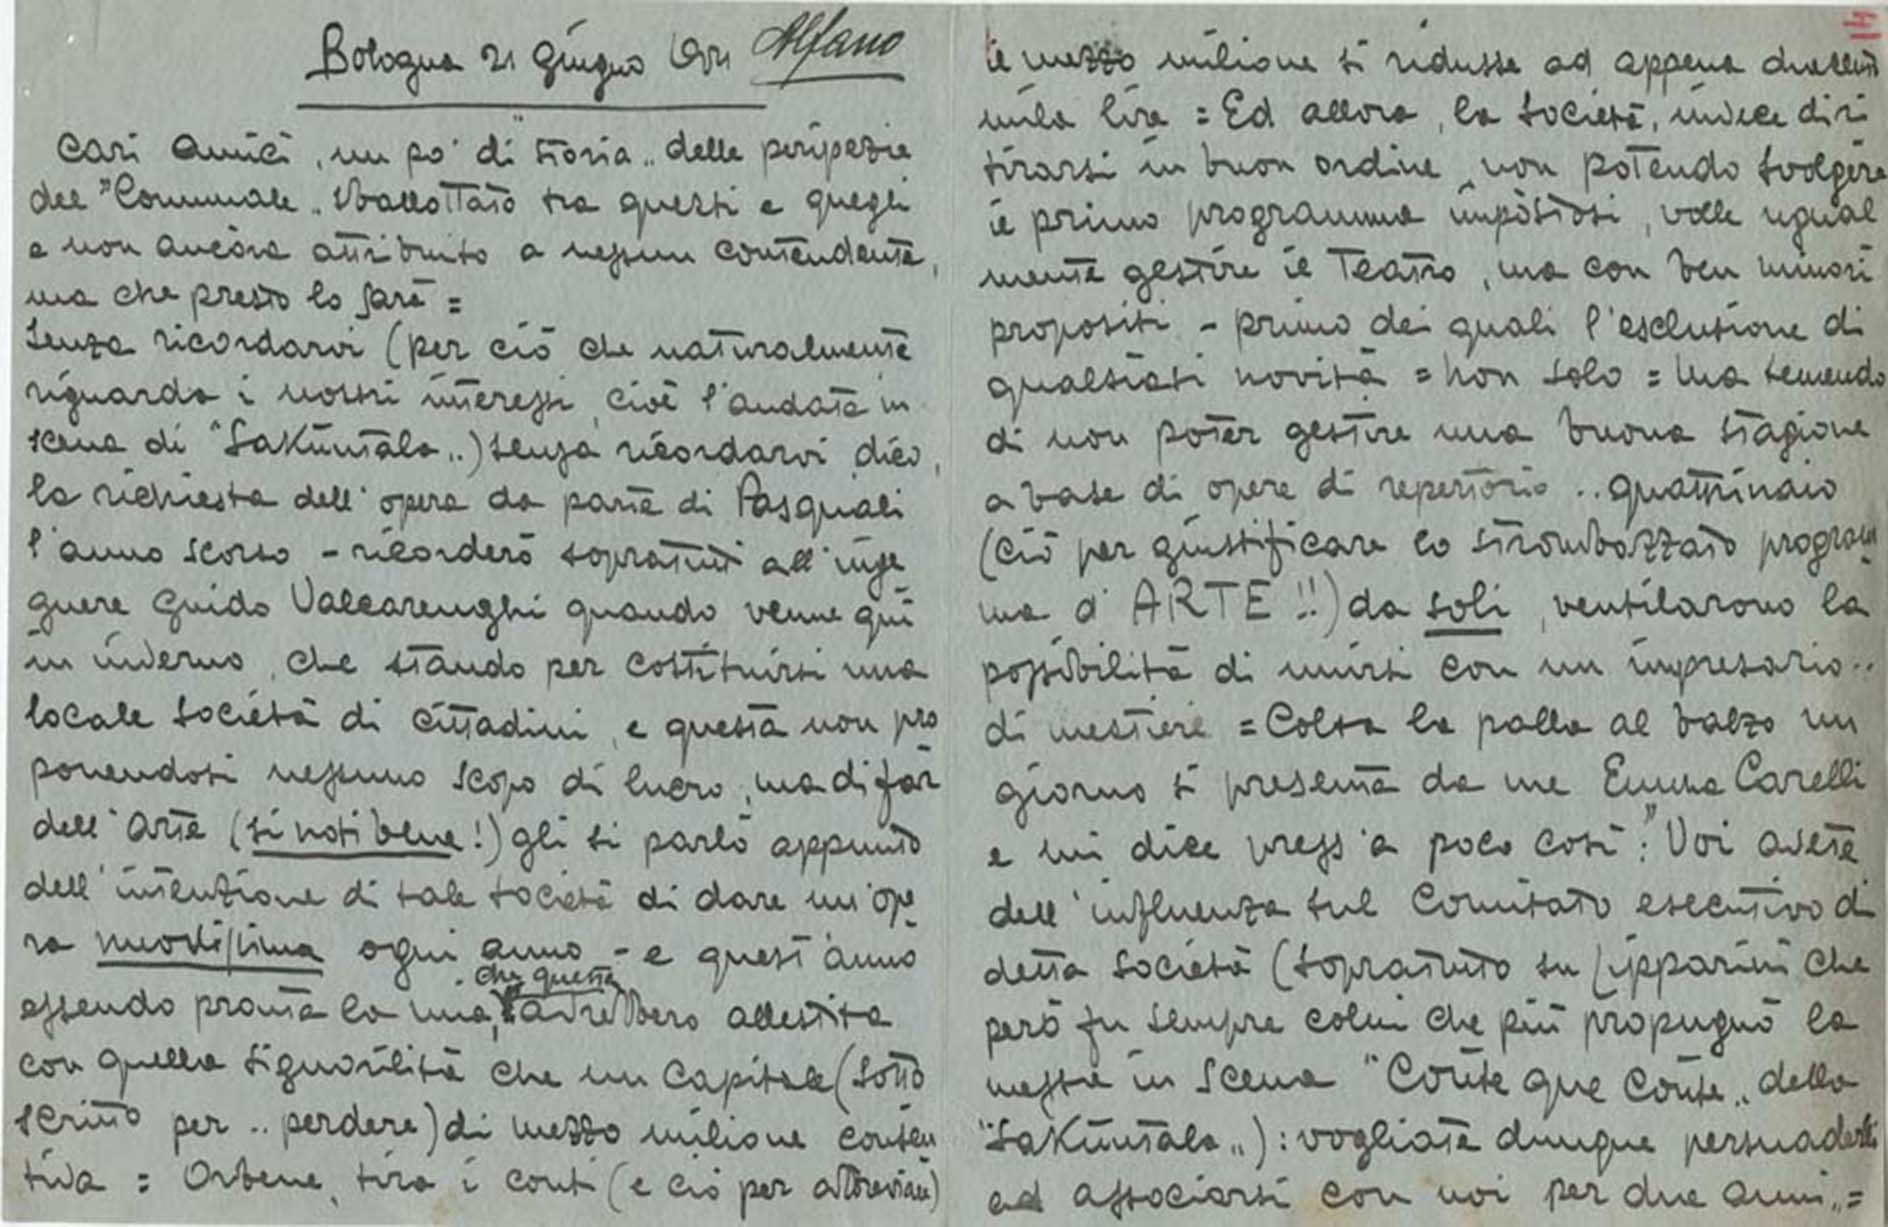 Bologna 21 Giugno 921 Alfano
Cari Amici, un po' di "storia„ delle peripezie
del "Comunale„ sballottato tra questi e quegli
e non ancòra attribuito a nessun contendente,
ma che presto lo sarà =
Senza ricordarvi (per ciò che naturalmente
riguarda i nostri interessi, cioè l'andata in
scena di "Sakùntala„) senza ricordarvi, dico,
la richiesta dell'opera da parte di Pasquali
l'anno scorso - ricorderò sopratutto all'inge
gnere Guido Valcarenghi quando venne quì
in inverno, che stando per costituirsi una
locale Società di cittadini, e questa non pro
ponendosi nessuno scopo di lucro, ma di far
dell'Arte (si noti bene!) gli si parlò appunto
dell'intenzione di tale Società di dare un'ope
ra nuovissima ogni anno - e quest'anno
che questa
essendo pronta la mia, avrebbero allestita
con quella signorilità che un capitale (sotto
scritto per .. perdere) di mezzo milione consen
tiva = Orbene, tira i conti (e ciò per abbreviare)
il mezzo milione si ridusse ad appena duecento
mila lire = Ed allora, la Società, invece di ri
tirarsi in buon ordine, non potendo svolgere
il primo programma impòstosi, volle ugual
mente gestire il Teatro, ma con ben minori
propositi - primo dei quali l'esclusione di
qualsiasi novità = Non solo = Ma temendo
di non poter gestire una buona stagione
a base di opere di repertorio .. quattrinaio
(ciò per giustificare lo strombazzato program
ma d'ARTE!!) da soli, ventilarono la
possibilità di unirsi con un impresario ..
di mestiere = Colta la palla al balzo un
giorno si presenta da me Emma Carelli
e mi dice press'a poco così: "Voi avete
dell'influenza sul Comitato esecutivo di
detta Società (sopratutto su Lipparini che
però fu sempre colui che più propugnò la
messa in scena "Coûte que Coûte„ della
"Sakùntala„): vogliate dunque persuaderli
ad associarsi con noi per due anni„ =